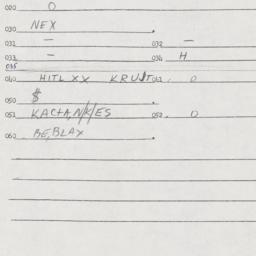 020 O
030 NEX .
032 — 032 —
033 — 034 H
035
040 HITL XX KRUIT 042. O
050 $ .
052 KACTA, N/K/ES 052. O
060 BE, BLAX .